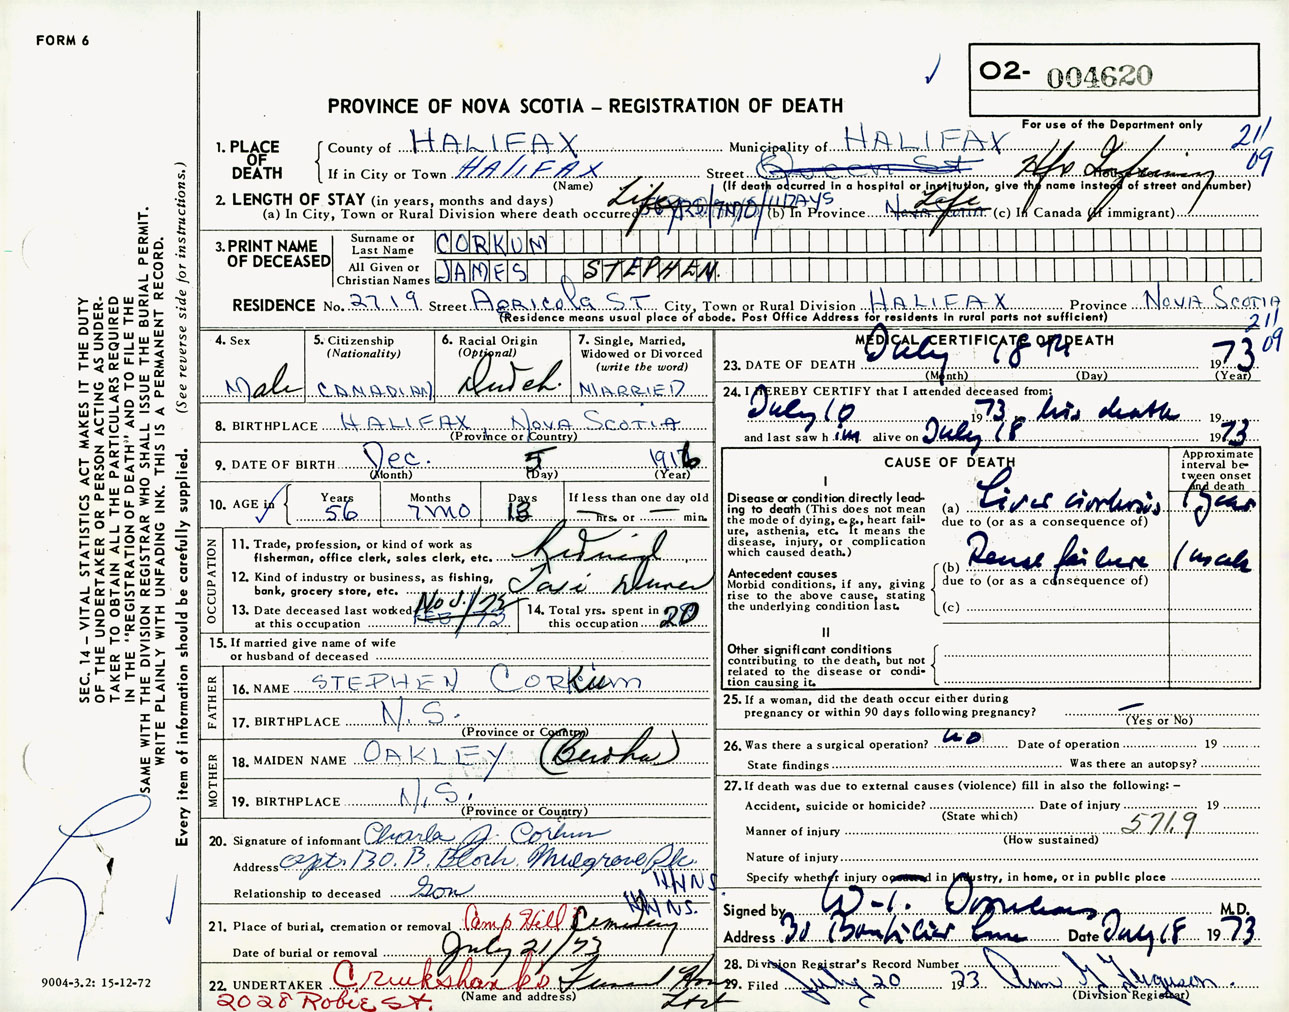 FORM 6
O2- 004620
PROVINCE OF NOVA SCOTIA – REGISTRATION OF DEATH
For use of the Department only
211
09
1. PLACE OF DEATH
County of HALIFAX Municipality of HALIFAX
If in City or Town HALIFAX Street Queen St Hfx Infirmary
(Name) (If death occurred in a hospital or institution, give the name instead of street and number)
2. LENGTH OF STAY (in years, months and days)
(a) In City, Town or Rural Division where death occurred Life (b) In Province Life (c) In Canada (if immigrant)
3. PRINT NAME OF DECEASED
Surname or Last Name CORKUM
All Given or Christian Names JAMES STEPHEN
RESIDENCE No. 2719 Street AGRICOLA ST City, Town or Rural Division HALIFAX Province NOVA SCOTIA
(Residence means usual place of abode. Post Office Address for residents in rural parts not sufficient)
211
09
4. Sex Male
5. Citizenship (Nationality) CANADIAN
6. Racial Origin (Optional) Dutch.
7. Single, Married, Widowed or Divorced (write the word) MARRIED
8. BIRTHPLACE HALIFAX, NOVA SCOTIA
(Province or Country)
9. DATE OF BIRTH Dec. 5 1916
(Month) (Day) (Year)
10. AGE in Years 56 Months 7 MO Days 13 If less than one day old — hrs. or — min.
OCCUPATION
11. Trade, profession, or kind of work as fisherman, office clerk, sales clerk, etc. Retired
12. Kind of industry or business, as fishing, bank, grocery store, etc. Taxi Driver
13. Date deceased last worked at this occupation Nov./72
14. Total yrs. spent in this occupation 20
15. If married give name of wife or husband of deceased
FATHER
16. NAME STEPHEN CORKUM
17. BIRTHPLACE N.S.
(Province or Country)
MOTHER
18. MAIDEN NAME OAKLEY (Bertha)
19. BIRTHPLACE N.S.
(Province or Country)
20. Signature of informant Charles J. Corkum
Address apt. 130. B. Block. Mulgrave Pk. HX NS
Relationship to deceased Son HX NS.
21. Place of burial, cremation or removal Camp Hill Cemetery
Date of burial or removal July 21/73
22. UNDERTAKER Cruikshank's Funeral Home Ltd
(Name and address)
2028 Robie St.
MEDICAL CERTIFICATE OF DEATH
23. DATE OF DEATH July 18th 1973
(Month) (Day) (Year)
24. I HEREBY CERTIFY that I attended deceased from:
July 10 1973 his death 19
and last saw him alive on July 18 1973
CAUSE OF DEATH
Approximate interval between onset and death
I
Disease or condition directly leading to death (This does not mean the mode of dying, e.g., heart failure, asthenia, etc. It means the disease, injury, or complication which caused death.)
(a) Liver cirrhosis 1 year
due to (or as a consequence of)
Antecedent causes
Morbid conditions, if any, giving rise to the above cause, stating the underlying condition last.
(b) Renal failure 1 week
due to (or as a consequence of)
(c)
II
Other significant conditions contributing to the death, but not related to the disease or condition causing it.
25. If a woman, did the death occur either during pregnancy or within 90 days following pregnancy? —
(Yes or No)
26. Was there a surgical operation? no Date of operation 19
State findings Was there an autopsy?
27. If death was due to external causes (violence) fill in also the following: –
Accident, suicide or homicide? Date of injury 19
(State which)
Manner of injury 5719
(How sustained)
Nature of injury
Specify whether injury occurred in industry, in home, or in public place
Signed by M.D.
Address 30 Date July 18 1973
28. Division Registrar's Record Number
29. Filed July 20 1973 Ann G. Ferguson.
(Division Registrar)
SEC. 14 – VITAL STATISTICS ACT MAKES IT THE DUTY
OF THE UNDERTAKER OR PERSON ACTING AS UNDER-
TAKER TO OBTAIN ALL THE PARTICULARS REQUIRED
IN THE "REGISTRATION OF DEATH" AND TO FILE THE
SAME WITH THE DIVISION REGISTRAR WHO SHALL ISSUE THE BURIAL PERMIT.
WRITE PLAINLY WITH UNFADING INK. THIS IS A PERMANENT RECORD.
Every item of information should be carefully supplied. (See reverse side for instructions.)
9004-3.2: 15-12-72